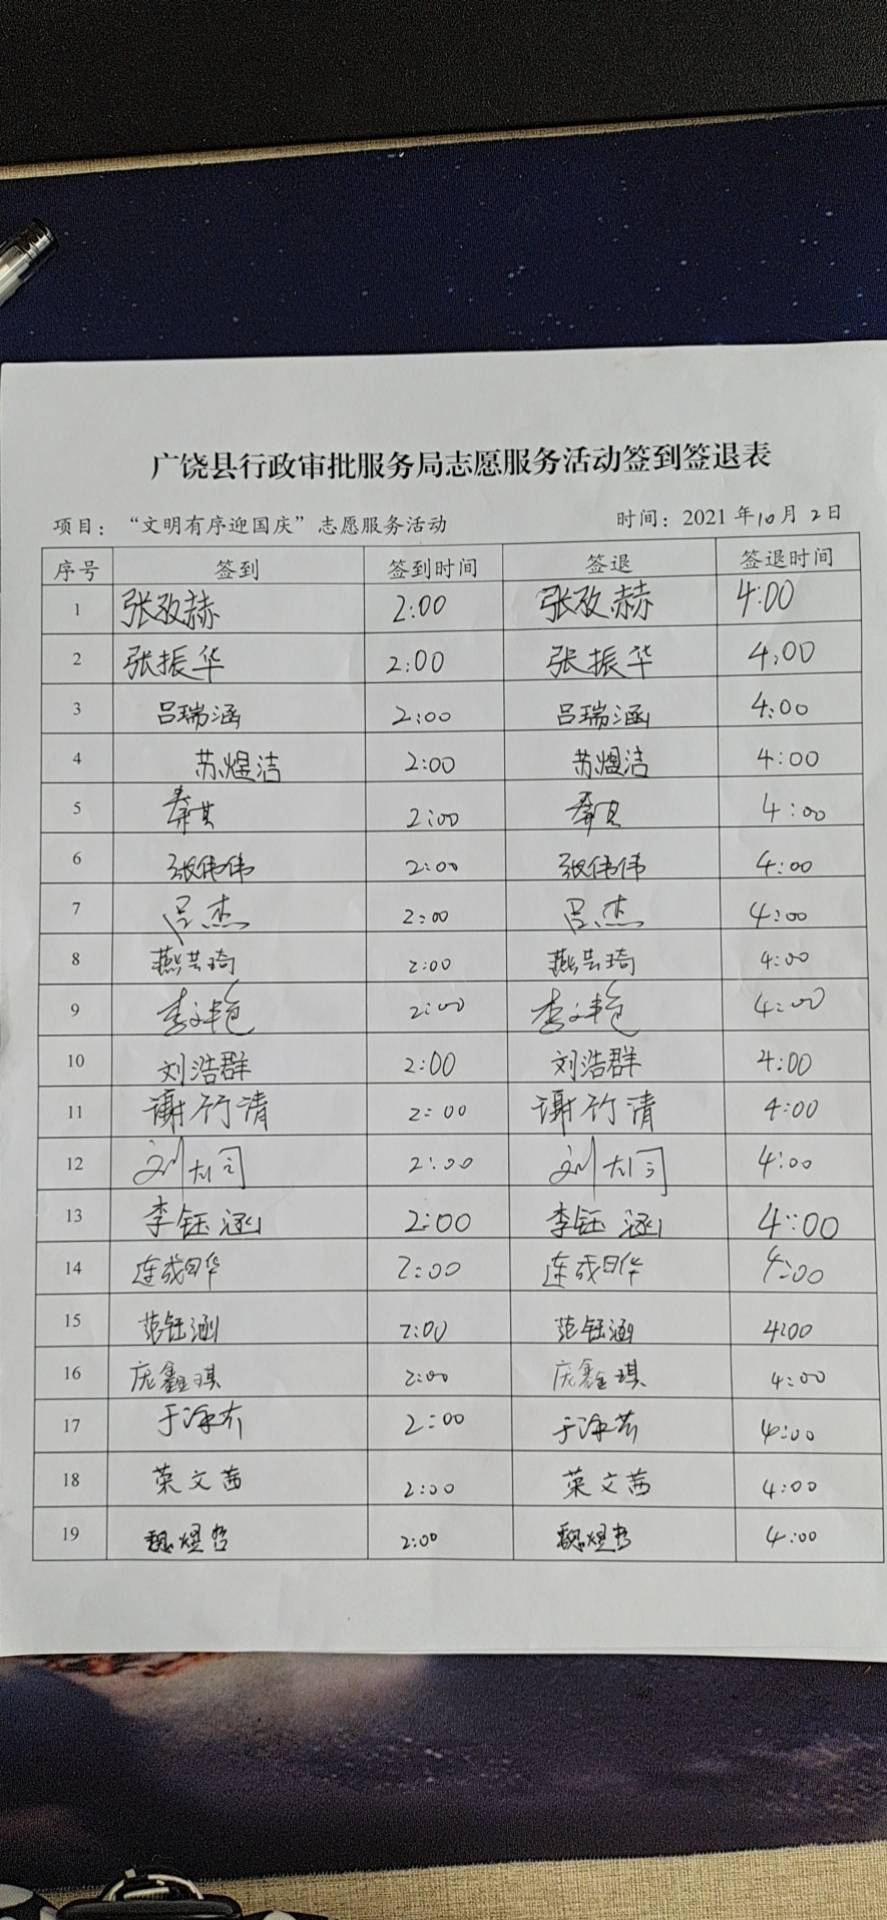 广饶县行政审批服务局志愿服务活动签到签退表
项目：“文明有序迎国庆”志愿服务活动 时间：2021年10月2日
序号 签到 签到时间 签退 签退时间
1 2:00 4:00
2 张振华 2:00 张振华 4:00
3 吕瑞涵 2:00 吕瑞涵 4:00
4 苏煜洁 2:00 苏煜洁 4:00
5 2:00 4:00
6 张伟伟 2:00 张伟伟 4:00
7 吕杰 2:00 吕杰 4:00
8 燕芸琦 2:00 燕芸琦 4:00
9 2:00 4:00
10 刘浩群 2:00 刘浩群 4:00
11 谢竹清 2:00 谢竹清 4:00
12 2:00 4:00
13 李钰涵 2:00 李钰涵 4:00
14 2:00 4:00
15 范钰涵 2:00 范钰涵 4:00
16 庞鑫琪 2:00 庞鑫琪 4:00
17 2:00 4:00
18 荣文茜 2:00 荣文茜 4:00
19 魏煜哲 2:00 魏煜哲 4:00